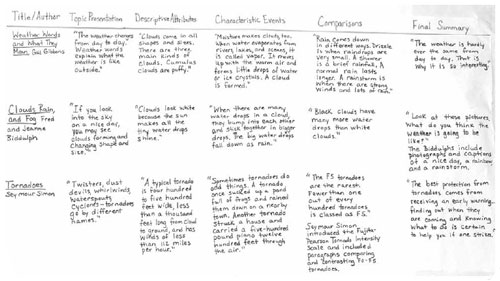 Title/Author
Topic Presentation
Descriptive Attributes
Characteristic Events
Comparisons
Final Summary
Weather Words
and What They
Mean Gail Gibbons
"The weather changes
from day to day."
Weather words
explain what the
weather is like
outside."
"Clouds come in all
shapes and sizes.
There are three
main kinds of
clouds. Cumulus
clouds are puffy."
"Moisture makes clouds, too.
When water evaporates from
rivers, lakes, and oceans, it
is called vapor. It moves
up with the warm air and
forms little drops of water
or ice crystals. A cloud
is formed."
"Rain comes down
in different ways. Drizzle
is when raindrops are
very small. A shower
is a brief rainfall. A
normal rain lasts
longer. A rainstorm is
when there are strong
winds and lots of rain."
"The weather is hardly
ever the same from
day to day. That is
why it is so interesting."
Clouds, Rain,
and Fog Fred
and Jeanne
Biddulph
"If you look
into the sky
on a nice day,
you may see
clouds forming and
changing shape and
size."
"Clouds look white
because the sun
makes all the
tiny water drops
shine."
"When there are many
water drops in a cloud,
they bump into each other
and stick together in bigger
drops. The big water drops
fall down as rain."
"Black clouds have
many more water
drops than white
clouds."
"Look at these pictures.
What do you think the
weather is going to be
like?"
The Biddulphs include
photographs and captions
of a nice day, a rainbow
and a rainstorm.
Tornadoes
Seymour Simon
"Twisters, dust
devils, whirlwinds,
waterspouts,
cyclones - tornadoes
go by different
names."
"A typical tornado
is four hundred
to five hundred
feet wide, less
than a thousand
feet long from cloud
to ground, and has
winds of less
than 112 miles
per hour."
"Sometimes tornadoes do
odd things. A tornado
once sucked up a pond
full of frogs and rained
them down on a nearby
town. Another tornado
struck a house and
carried a five-hundred
pound piano twelve
hundred feet through
the air."
"The F5 tornadoes
are the rarest.
Fewer than one
out of every
hundred tornadoes
is classed as F5."
Seymour Simon
introduced the Fujita-
Pearson Tornado Intensity
Scale and included
paragraphs comparing
and contrasting F0-F5
tornadoes.
"The best protection from
tornadoes comes from
receiving an early warning,
finding out when they
are coming and knowing
what to do is certain
to help you if one strikes."